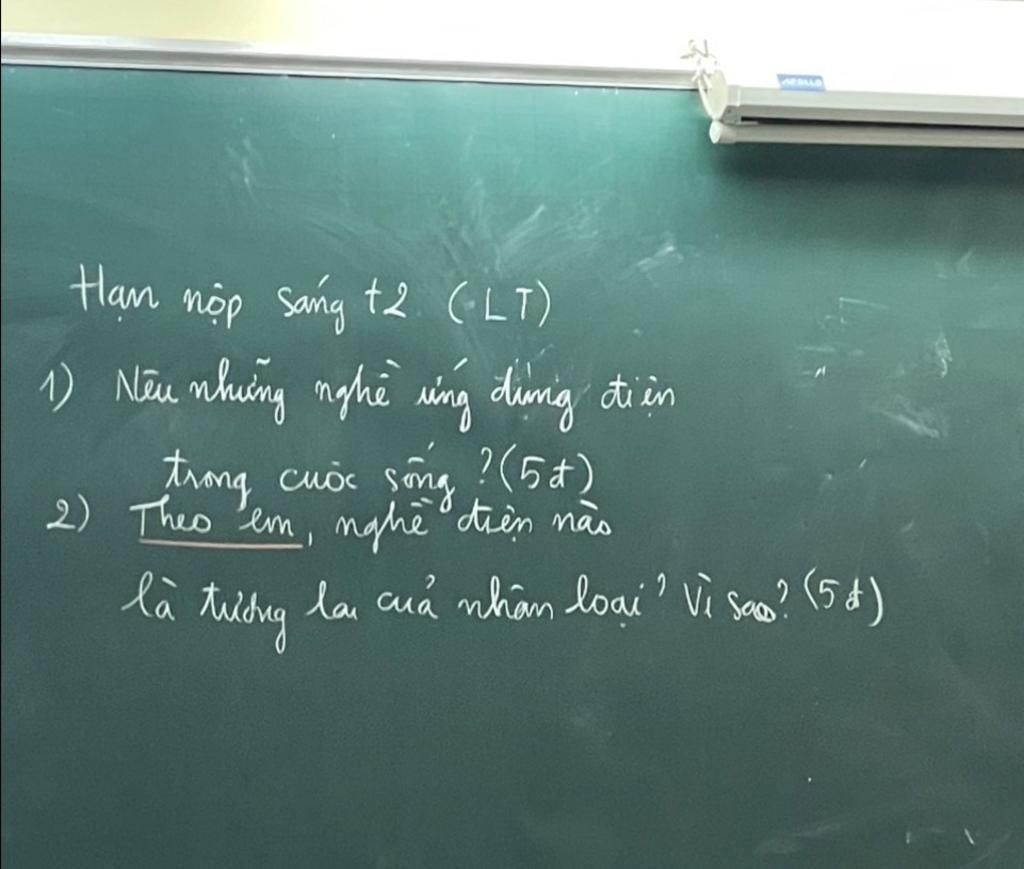 APOLLO
Hạn nộp sáng t2 (LT)
1) Nêu những nghề ứng dụng điện
trong cuộc sống? (5đ)
2) Theo em, nghề điện nào
là tương lai của nhân loại? Vì sao? (5đ)